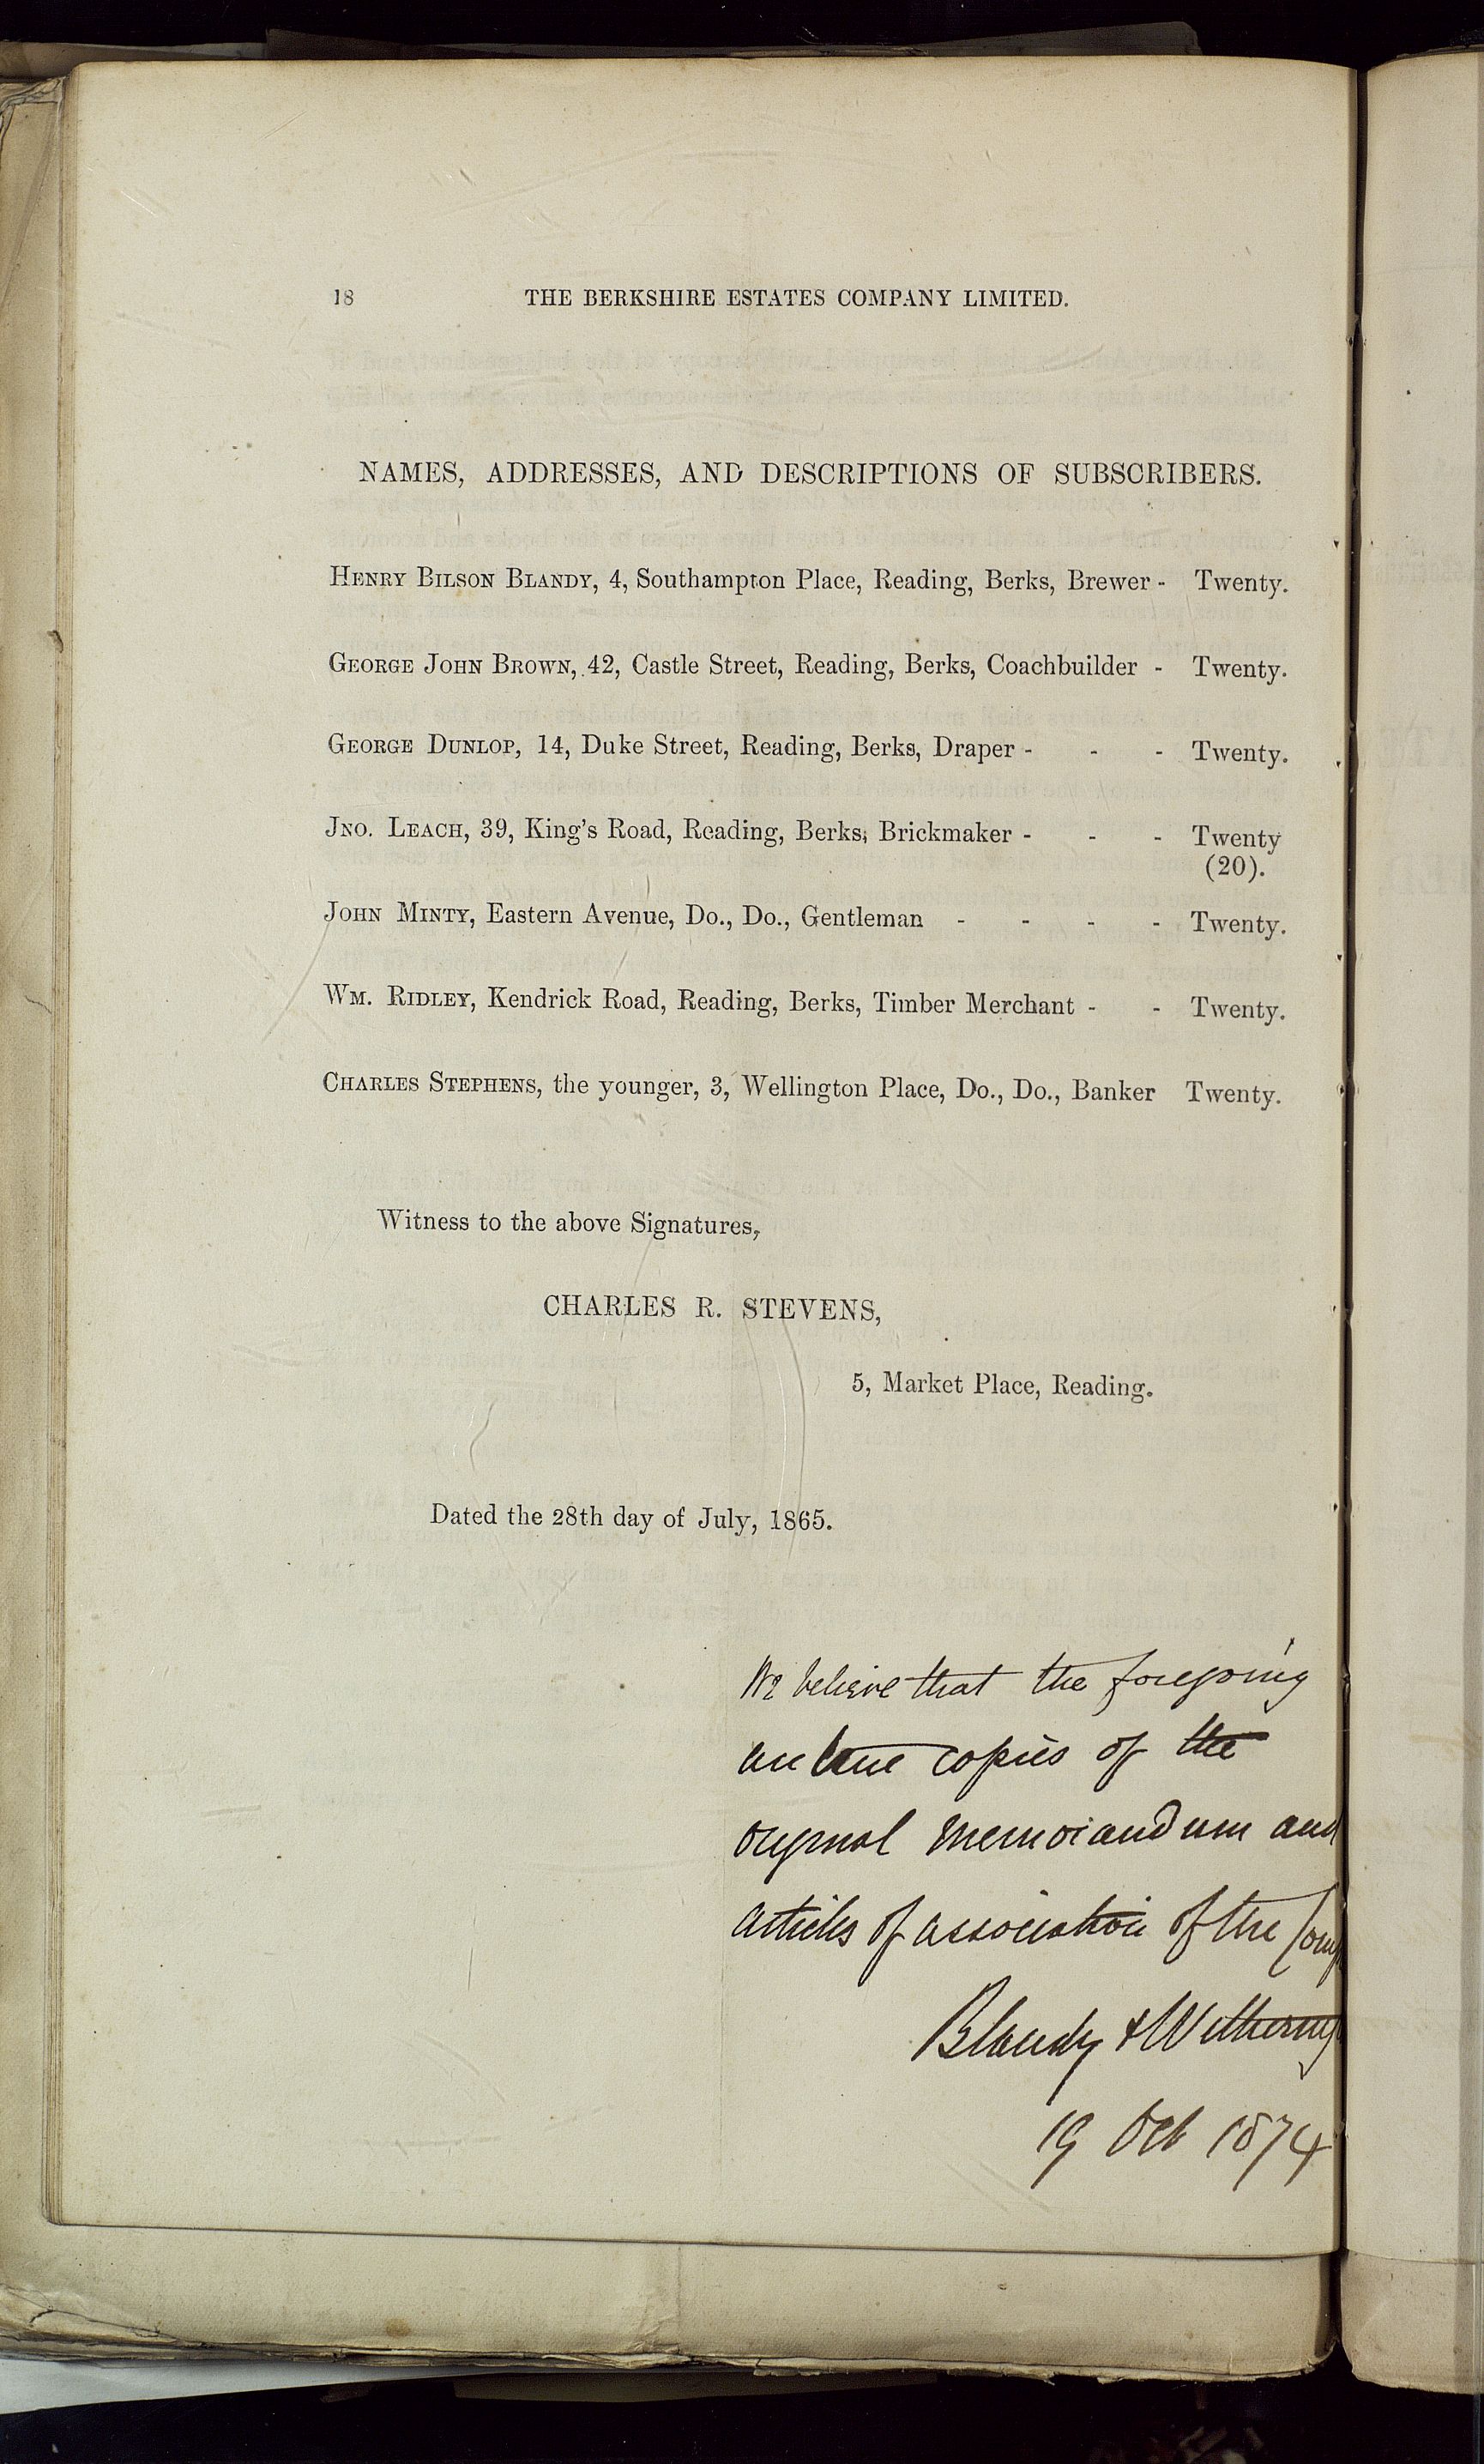 18 THE BERKSHIRE ESTATES COMPANY LIMITED.
NAMES, ADDRESSES, AND DESCRIPTIONS OF SUBSCRIBERS.
HENRY BILSON BLANDY, 4, Southampton Place, Reading, Berks, Brewer - Twenty.
GEORGE JOHN BROWN, 42, Castle Street, Reading, Berks, Coachbuilder - Twenty.
GEORGE DUNLOP, 14, Duke Street, Reading, Berks, Draper - - - Twenty.
JNO. LEACH, 39, King's Road, Reading, Berks, Brickmaker - - - Twenty
(20).
JOHN MINTY, Eastern Avenue, Do., Do., Gentleman - - - - Twenty.
WM. RIDLEY, Kendrick Road, Reading, Berks, Timber Merchant - - Twenty.
CHARLES STEPHENS, the younger, 3, Wellington Place, Do., Do., Banker Twenty.
Witness to the above Signatures,
CHARLES R. STEVENS,
5, Market Place, Reading.
Dated the 28th day of July, 1865.
We believe that the foregoing
are true copies of the
original Memorandum and
articles of association of the
Blandy &
19 Oct 1874